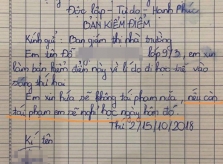 Độc lập - Tự do - Hạnh Phúc
BẢN KIỂM ĐIỂM
Kính gửi: Ban giám thị nhà trường
Em tên Đỗ lớp 9/3, em xin
làm bản kiểm điểm này vì lí do đi học trễ vào
sáng thứ hai
Em xin hứa sẽ không tái phạm nữa, nếu còn
tái phạm em sẽ nghỉ học ngay hôm đó
Thứ 2/15/10/2018
Kí tên